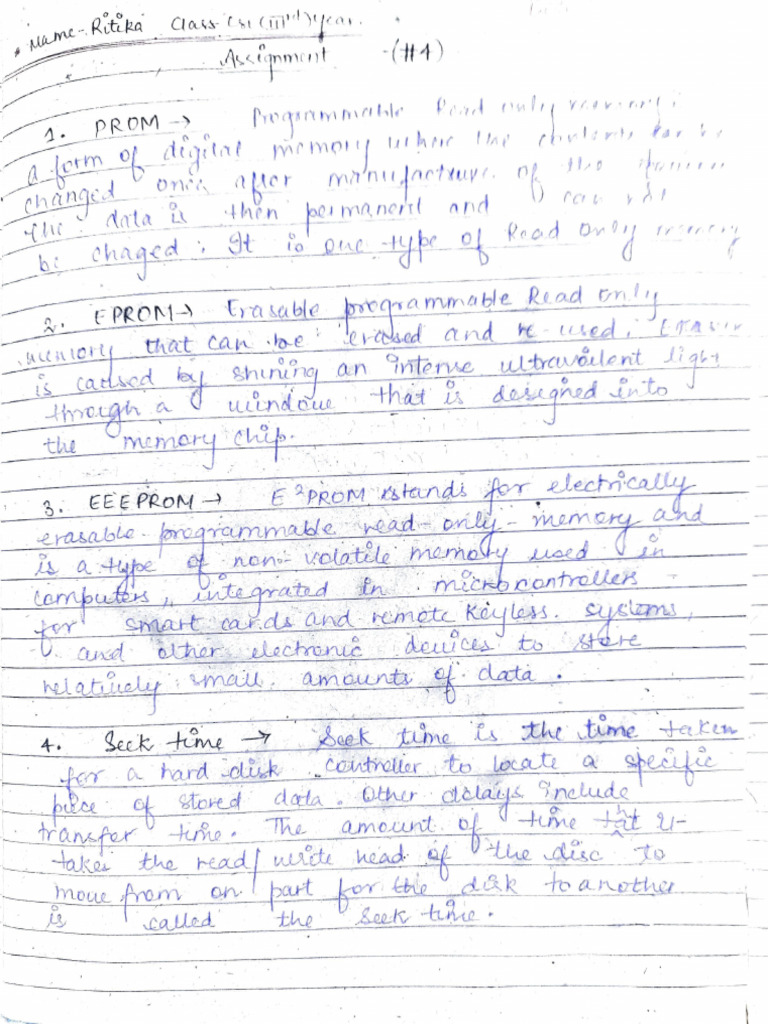 Name- Ritika Class-CSE (IIIrd) year.
Assignment -(#4)
1. PROM → Programmable Read only memory,
a form of digital memory where the contents can be
changed once after manufacture of the
The data is then permanent and can not
be chaged. It is one type of Read Only memory
2. EPROM → Erasable programmable Read only
memory that can be erased and re-used. Erasure
is caused by shining an intense ultravoilent light
through a window that is designed into
the memory chip.
3. EEEPROM → E²PROM stands for electrically
erasable programmable read-only-memory and
is a type of non-volatile memory used in
computers, integrated in microcontrollers
for smart cards and remote keyless systems,
and other electronic devices to store
relatively small amounts of data.
4. Seek time → Seek time is the time taken
for a hard disk controller to locate a specific
piece of stored data. Other delays include
transfer time. The amount of time that it
takes the read/write head of the disc to
move from on part for the disk to another
is called the seek time.